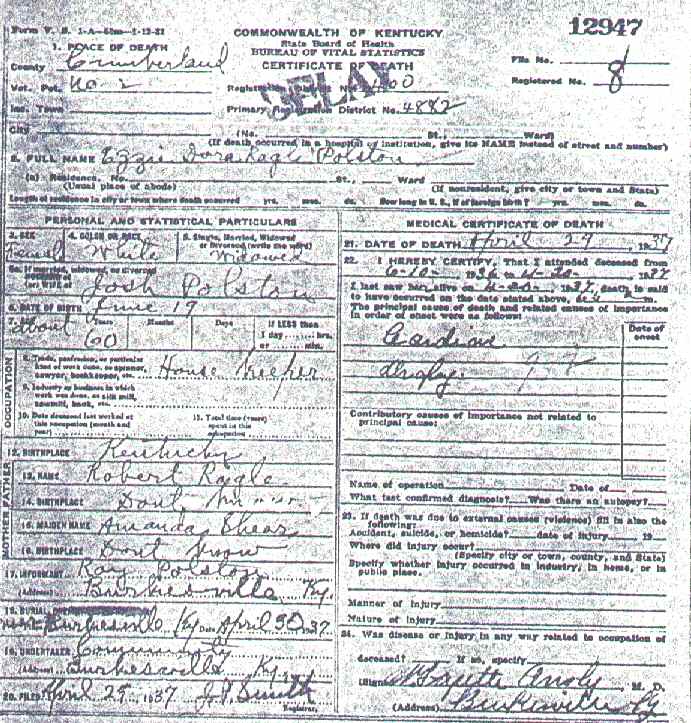 Form V. S. 1-A
12947
COMMONWEALTH OF KENTUCKY
State Board of Health
BUREAU OF VITAL STATISTICS
CERTIFICATE OF DEATH
DELAY
1. PLACE OF DEATH
County Cumberland
Vot. Pct. No-2
Inc. Town
City
Registration District No.
Primary Registration District No. 4882
File No.
Registered No. 8
(No. St., Ward)
(If death occurred in a hospital or institution, give its NAME instead of street and number)
2. FULL NAME Ezzie Dora Ragle Polston
(a) Residence, No. St., Ward
(Usual place of abode) (If nonresident, give city or town and State)
Length of residence in city or town where death occurred yrs. mos. ds. How long in U. S., if of foreign birth? yrs. mos. ds.
PERSONAL AND STATISTICAL PARTICULARS
3. SEX 4. COLOR OR RACE 5. Single, Married, Widowed
or Divorced (write the word)
Female White Widowed
5a. If married, widowed, or divorced
(or) WIFE of Josh Polston
6. DATE OF BIRTH June 19
7. about 60 Years Months Days If LESS than
1 day hrs.
or min.
OCCUPATION
8. Trade, profession, or particular
kind of work done, as spinner,
sawyer, bookkeeper, etc. House Keeper
9. Industry or business in which
work was done, as silk mill,
sawmill, bank, etc.
10. Date deceased last worked at
this occupation (month and
year)
11. Total time (years)
spent in this
occupation
12. BIRTHPLACE Kentucky
FATHER
13. NAME Robert Ragle
14. BIRTHPLACE Dont Know
MOTHER
15. MAIDEN NAME Amanda
16. BIRTHPLACE Dont Know
17. INFORMANT Ray Polston
(Address) Burkesville Ky.
18. BURIAL
Burkesville Ky Date April 30 1937
19. UNDERTAKER Community
(Address) Burkesville Ky
20. FILED April 29, 1937 J. P. Smith
Registrar.
MEDICAL CERTIFICATE OF DEATH
21. DATE OF DEATH April 29 1937
22. I HEREBY CERTIFY, That I attended deceased from
6-10- 1936 to 4-20- 1937
I last saw her alive on 4-20-, 1937, death is said
to have occurred on the date stated above, at m.
The principal cause of death and related causes of importance
in order of onset were as follows:
Date of
onset
Cardiac
Contributory causes of importance not related to
principal cause:
Name of operation Date of
What test confirmed diagnosis? Was there an autopsy?
23. If death was due to external causes (violence) fill in also the
following:
Accident, suicide, or homicide? date of injury 19
Where did injury occur?
(Specify city or town, county, and State)
Specify whether injury occurred in industry, in home, or in
public place.
Manner of Injury
Nature of Injury
24. Was disease or injury in any way related to occupation of
deceased? If so, specify
(Signed) M. D.
(Address) Burkesville Ky